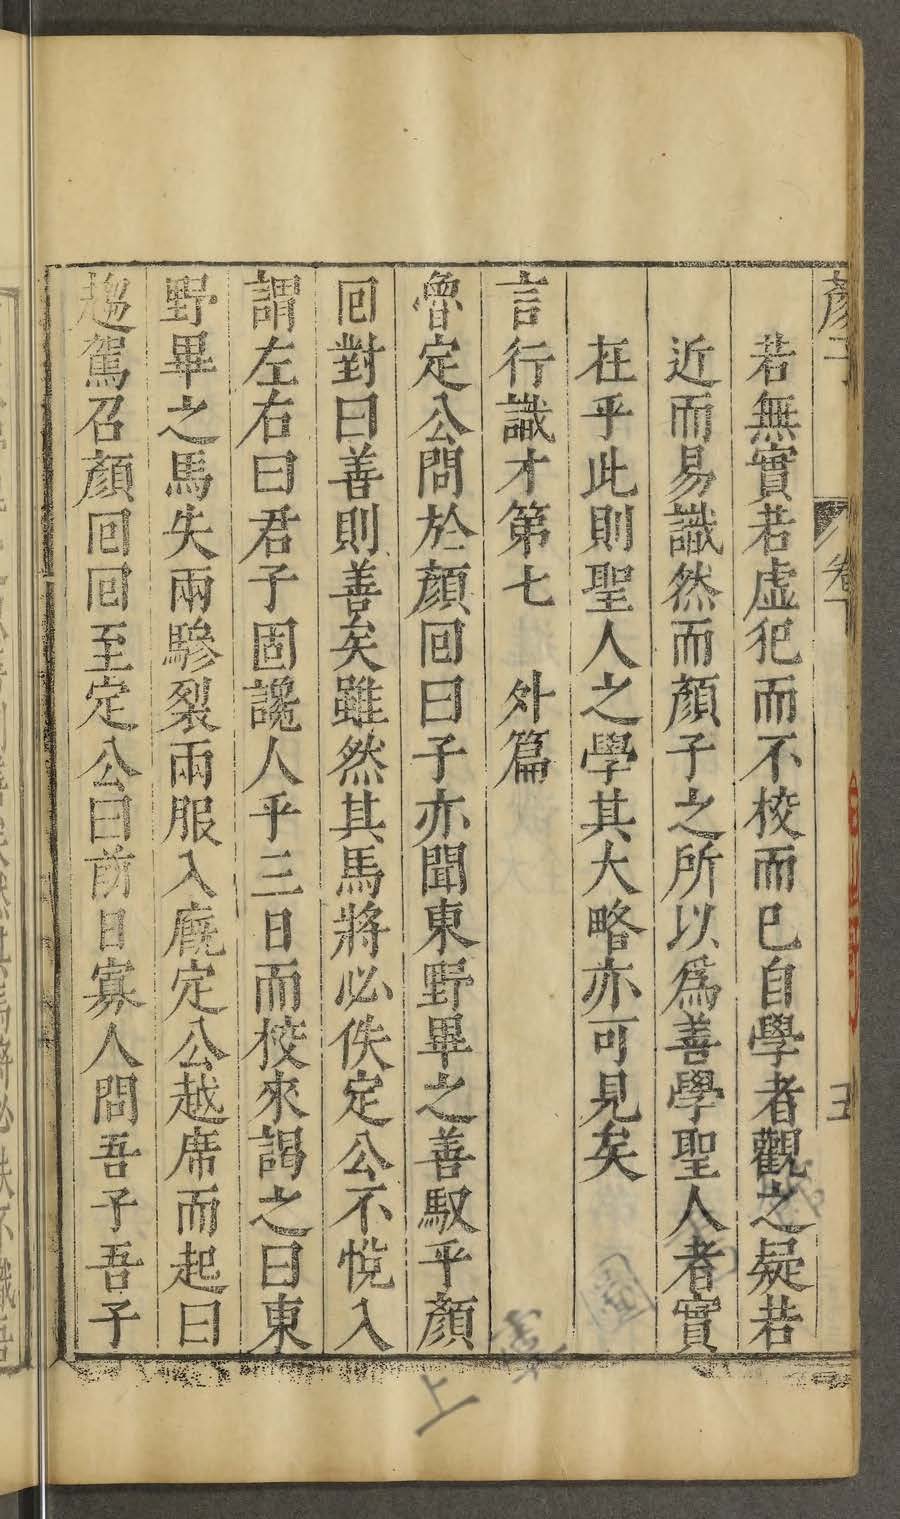 顏子 卷下 五
若無實若虛犯而不校而已自學者觀之疑若
近而易識然而顏子之所以爲善學聖人者實
在乎此則聖人之學其大略亦可見矣
言行識才第七 外篇
魯定公問於顏回曰子亦聞東野畢之善馭乎顏
回對曰善則善矣雖然其馬將必佚定公不悅入
謂左右曰君子固讒人乎三日而校來謁之曰東
野畢之馬失兩驂裂兩服入廐定公越席而起曰
趨駕召顏回回至定公曰前日寡人問吾子吾子